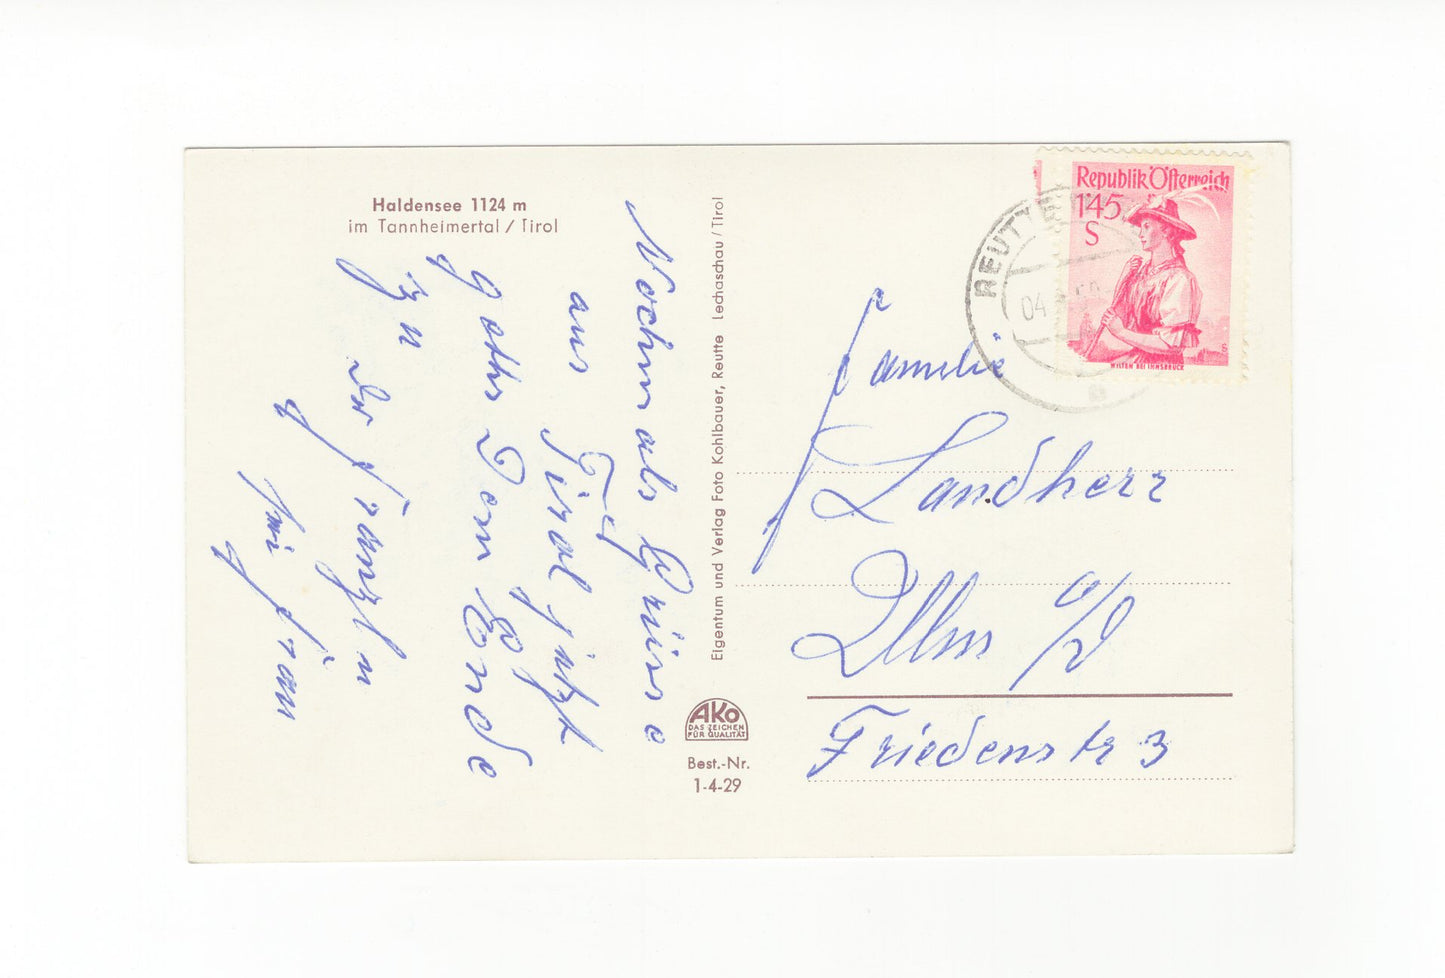 Haldensee 1124 m
im Tannheimertal / Tirol
Nochmals Grüsse
aus Tirol jetzt
gehts Dem Ende
zu
Frau
Eigentum und Verlag Foto Kohlbauer, Reutte Lechaschau / Tirol
AKO
DAS ZEICHEN
FÜR QUALITÄT
Best.-Nr.
1-4-29
Republik Österreich
1'45
S
WILTEN BEI INNSBRUCK
REUTTE
04
a
Familie
Landherr
Ulm a/D
Friedenstr 3